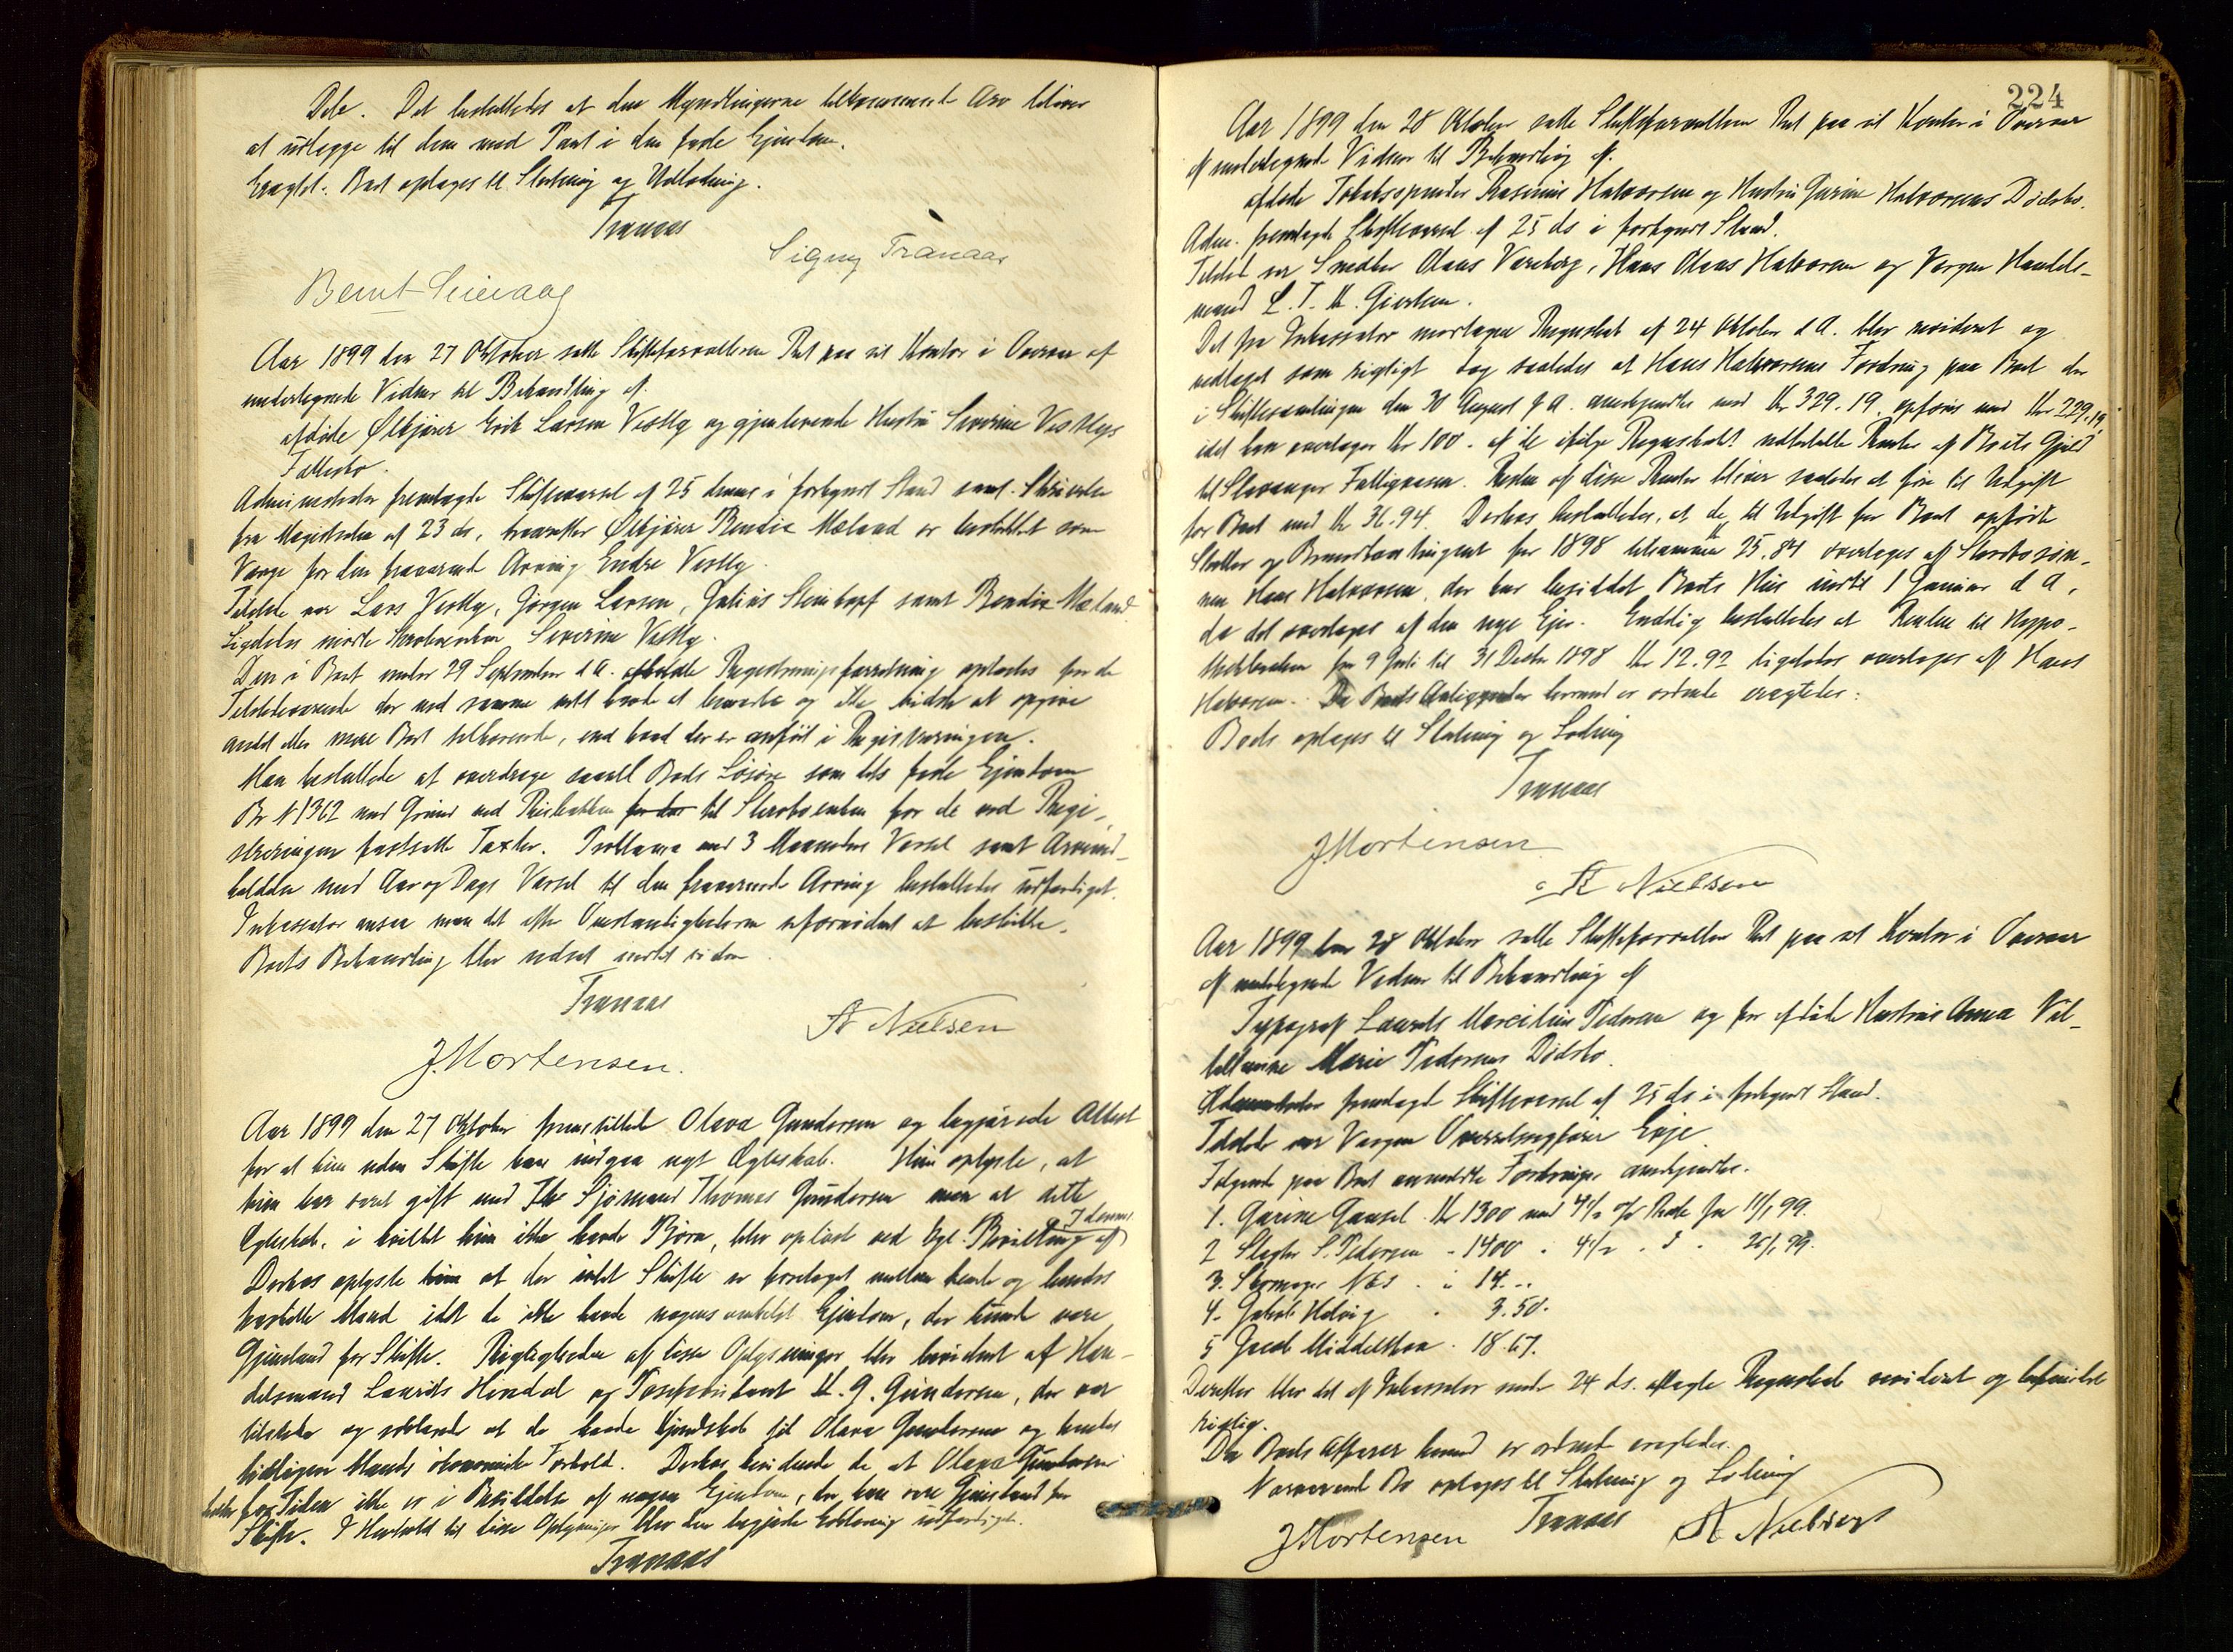 Dele. Det besluttedes at den Myndlingerne tilkommende Arv bliver
at udlægge til dem med Pant i den faste Ejendom.
Eragtet: Boet optages til Slutning og Udlodning.
Tranaas
Signy Tranaas
Bernt
Aar 1899 den 27 Oktober satte Skifteforvalteren Ret paa sit Kontor i Overvær af
undertegnede Vidner til Behandling af
afdøde Ølkjører Erik Larsen Vestly og gjenlevende Hustru Severine Vestlys
Fællesbo.
Administrator fremlagte Skiftevarsel af 25 dennes i forkyndt Stand samt Skrivelse
fra Magistraten af 23 ds, hvorefter Ølkjører Bendix Mæland er beskikket som
Værge for den fraværende Arving Endre Vestly.
Tilstede var Lars Vestly, Jørgen Larsen, Julius Steinkopf samt Bendix Mæland
Ligeledes mødte Stervboenken Severine Vestly.
Den i Boet under 29 September d A. afholdte Registreringsforretning oplæstes for de
Tilstedeværende der ved samme intet havde at bemærke og ikke vidste at opgive
andet eller mere Boet tilhørende, end hvad der er anført i Registreringen.
Man besluttede at overdrage saavel Boets Løsøre som dets faste Ejendom
Br N 1362 med Grund ved for det til Stervboenken for de ved Regi-
streringen fastsatte Taxter. Proklama med 3 Maaneders Varsel samt Arveind-
kaldelse med Aar og Dags Varsel til den fraværende Arving besluttedes udfærdiget.
Inkassator ansaa man det efter Omstændighederne ufornødent at beskikke.
Boets Behandling blev udsat indtil videre
Tranaas
St Nielsen
J. Mortensen.
Aar 1899 den 27 Oktober fremstillede Olava Gundersen og begjærede Attest
for at hun uden Skifte kan indgaa nyt Ægteskab. Hun oplyste, at
hun har været gift med Sjømand Thomas Gundersen men at dette
Ægteskab, i hvilket hun ikke havde Børn, blev opløst ved kgl. Bevilling af 7 dennes
Derhos oplyste hun at der intet Skifte er foretaget mellem hende og hendes
fraskilte Mand idet de ikke havde nogensomhelst Ejendom, der kunde være
Gjenstand for Skifte. Rigtigheden af disse Oplysninger blev bevidnet af Han-
delsmand Laurits Hindal og H. G. Gundersen, der var
tilstede og erklærede at de havde Kjendskab til Olava Gundersens og hendes
tidligere Mands økonomiske Forhold. Derhos bevidnede de at Olava Gundersen
heller for Tiden ikke er i Besiddelse af nogen Ejendom, der kan være Gjenstand for
Skifte. I Henhold til disse Oplysninger blev den begjærte Erklæring udfærdiget.
Tranaas
224
Aar 1899 den 28 Oktober satte Skifteforvalteren Ret paa sit Kontor i Overvær
af undertegnede Vidner til Behandling af
afdøde Tobaksspinder Rasmus Halvorsen og Hustru Gurine Halvorsens Dødsbo.
Adm. fremlagte Skiftevarsel af 25 ds i forkyndt Stand.
Tilstede var Snedker Olaus Vareberg, Hans Olaus Halvorsen og Værgen Handels-
mand L. T. M. Giertsen.
Det fra Inkassator modtagne Regnskab af 24 Oktober d A. blev revideret og
vedtaget som rigtigt dog saaledes at Hans Halvorsens Fordring paa Boet der
i Skiftesamlingen den 30 August f A. anerkjendtes med Kr 329.19, opføres med Kr 229,19,
idet han overtager Kr 100 - af de ifølge Regnskabet udbetalte Renter af Boets Gjæld
til Stavanger Fattigvæsen. Resten af disse Renter bliver saaledes at føre til Udgift
for Boet med Kr 36.94. Derhos besluttedes, at de til Udgift for Boet opførte
Skatter og Brandkontingent for 1898 tilsammen 25.84 overtages af Stervbosøn-
nen Hans Halvorsen, der har besiddet Boets Hus indtil 1 Januar d A,
da det overtoges af den nye Ejer. Endelig besluttedes at Renten til Hypo-
thekbanken fra 9 Juli til 31 Decbr 1898 Kr 12.92 ligeledes overtages af Hans
Halvorsen. Da Boets Anliggender hermed er ordnede eragtedes:
Boet optages til Slutning og Lodning
Tranaas
J Mortensen
St Nielsen
Aar 1899 den 28 Oktober satte Skifteforvalteren Ret paa sit Kontor i Overvær
af undertegnede Vidner til Behandling af
Typograf Laurits Marcelius Pedersen og før afdøde Hustru Anna Vil-
helmine Marie Pedersens Dødsbo.
Administrator fremlagde Skiftevarsel af 25 ds i forkyndt Stand.
Tilstede var Værgen Overretssagfører Eeje.
Følgende paa Boet anmeldte Fordringer anerkjendtes.
1. Gurine Gausel Kr 1300 med 4½ % Rente fra 11/1 99.
2 Slagter S. Pedersen - 1400 - 4½ - " - 26/1 99.
3. Skomager Næs - " 14. --
4. Jakob Helvig - 3.50.
5 Jacob Middelthon - 18.67.
Derefter blev det af Inkassator under 24 ds. aflagte Regnskab revideret og befundet
rigtig.
Da Boets Affærer hermed er ordnet eragtedes.
Nærværende Bo optages til Slutning og Lodning
Tranaas
J Mortensen
St Nielsen